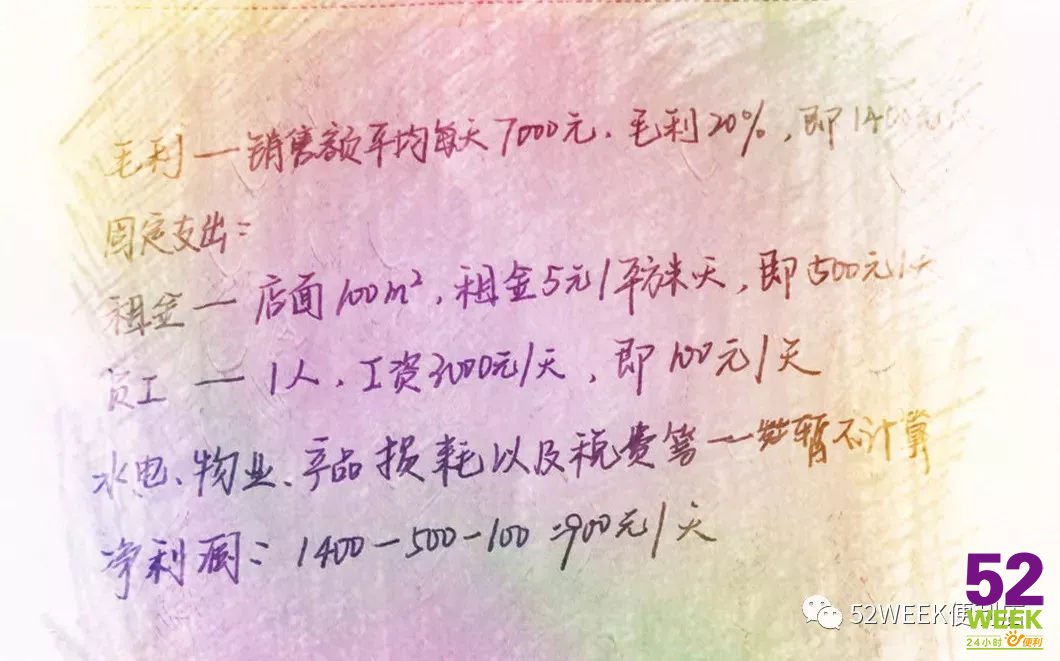 毛利 — 销售额平均每天7000元，毛利20%，即1400元/天
固定支出：
租金 — 店面100m²，租金5元/平方米天，即500元/天
员工 — 1人，工资3000元/天，即100元/天
水电、物业、产品损耗以及税费等 — 暂不计算
净利润：1400-500-100=900元/天
52WEEK便利店
52
WEEK
24小时 e便利